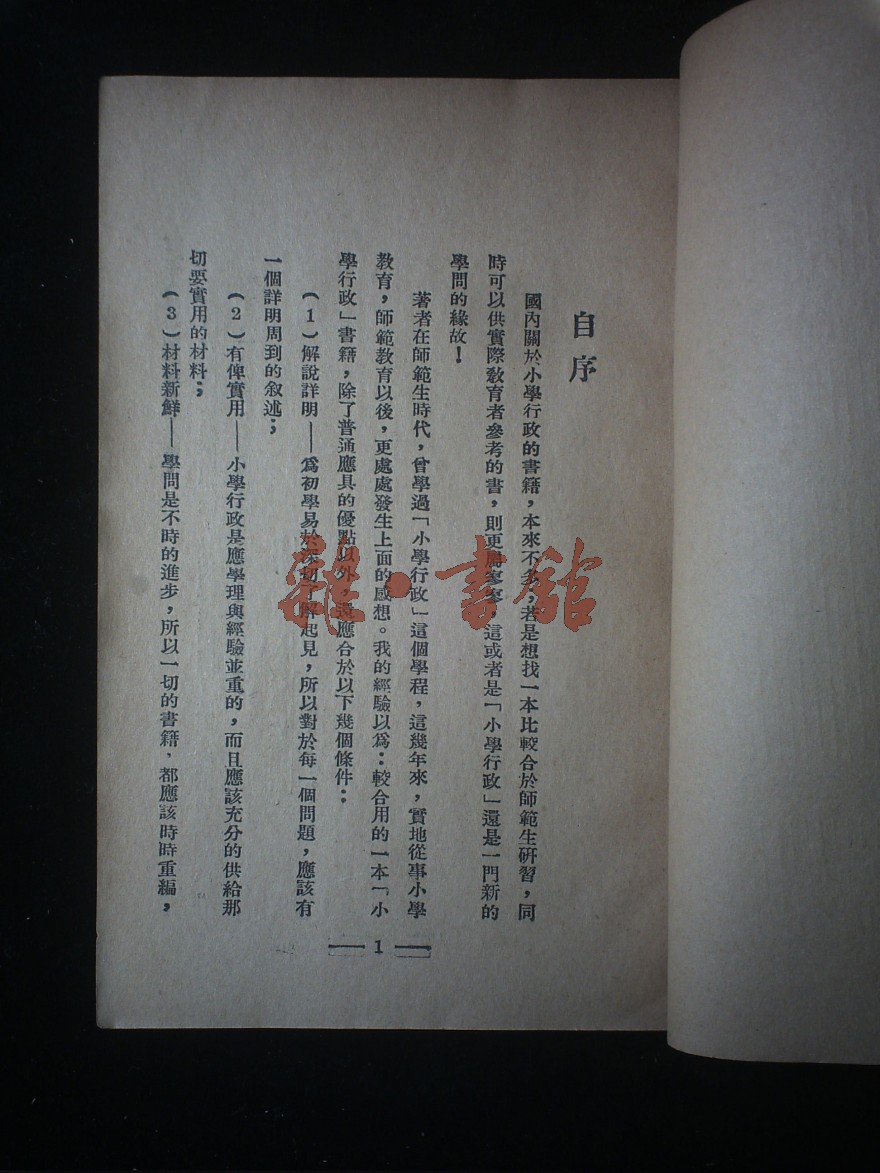 自序
國內關於小學行政的書籍，本來不多，若是想找一本比較合於師範生研習，同
時可以供實際教育者參考的書，則更屬寥寥，這或者是「小學行政」還是一門新的
學問的緣故！
著者在師範生時代，曾學過「小學行政」這個學程，這幾年來，實地從事小學
教育，師範教育以後，更處處發生上面的感想。我的經驗以爲：較合用的一本「小
學行政」書籍，除了普通應具的優點以外，還應合於以下幾個條件：
（1）解說詳明——爲初學易於深切了解起見，所以對於每一個問題，應該有
一個詳明周到的敘述；
（2）有俾實用——小學行政是應學理與經驗並重的，而且應該充分的供給那
切要實用的材料；
（3）材料新鮮——學問是不時的進步，所以一切的書籍，都應該時時重編，
1
雜·書館